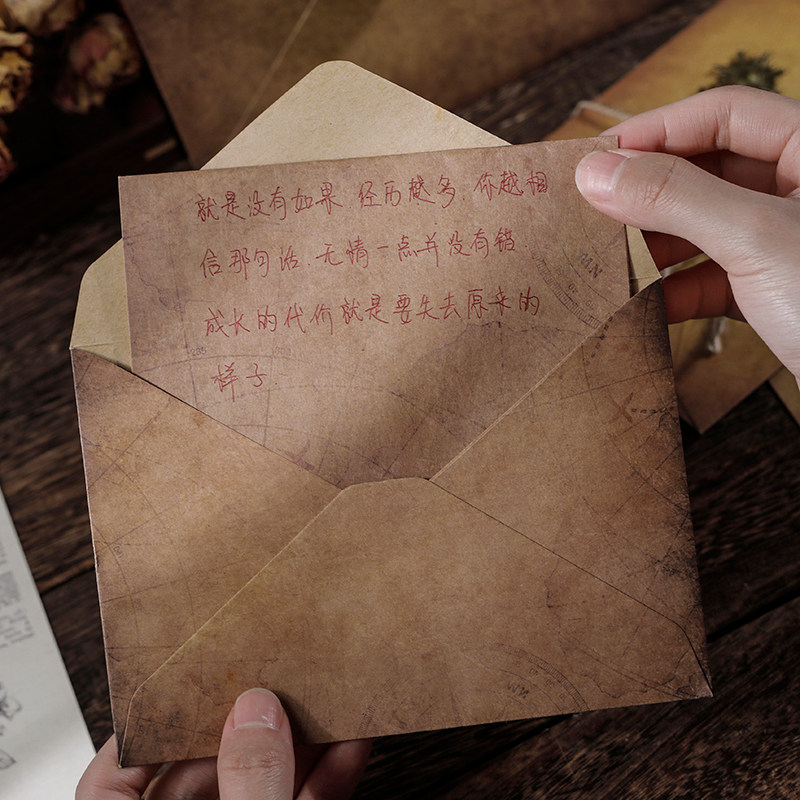 就是没有如果 经历越多. 你越相
信那句话. 无情一点并没有错.
成长的代价就是要失去原来的
样子.